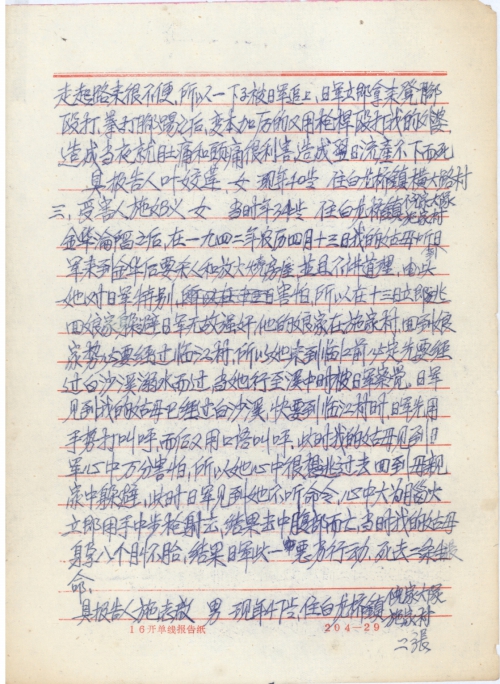 走起路来很不便，所以一下子被日军追上，日军立即拿来凳脚
殴打，拳打脚踢之后，变本加厉的又用枪桿殴打我的婆，
造成当夜就肚痛和头痛很利害，造成翌日流产不下而死
具报告人叶姣莲 女 现年40岁 住白龙桥镇横大路村
三、受害人施 女 当时年34岁 住白龙桥镇 施家村
金华沦陷之后，在一九四二年农历四月十三日我的姑母听到日
军来到金华后要杀人和放火烧房屋 并且不讲道理，由此
她对日军特别 害怕，所以在十三日立即逃
回娘家躲避日军无故强奸，他的娘家在施家村，回到娘
家势必要经过临江村，所以她来到临江前 必定先要经
过白沙溪溺水而过，当她行至溪中时被日军察觉。日军
见到我的姑母已经过白沙溪，快要到临江村时，日军先用
手势打叫呼，而后又用口哨叫呼，此时我的姑母见到日
军心中万分害怕，所以她心中很想逃过去回到母亲
家中躲避，此时日军见到她不听命令，心中大为恼火
立即用手中步枪射去，结果击中腹部而亡，当时我的姑母
身孕八个月怀胎，结果日军此一 恶劣行动，死去二条生
命。
具报告人施志教 男 现年47岁，住白龙桥镇 施家村
16开单线报告纸 204—29
二张